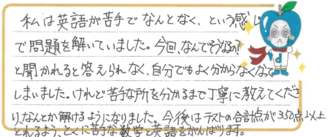 私は英語が苦手でなんとなく、という感じ
で問題を解いていました。今回、なんでそうなの?
と聞かれると答えられなく、自分でもよく分からなくなって
しまいました。けれど苦手な所を分かるまで丁寧に教えてくださ
り、なんとか解けるようになりました。今後はテストの合計点が350点以上
とれるよう、とくに苦手な数学と英語をがんばります。
d